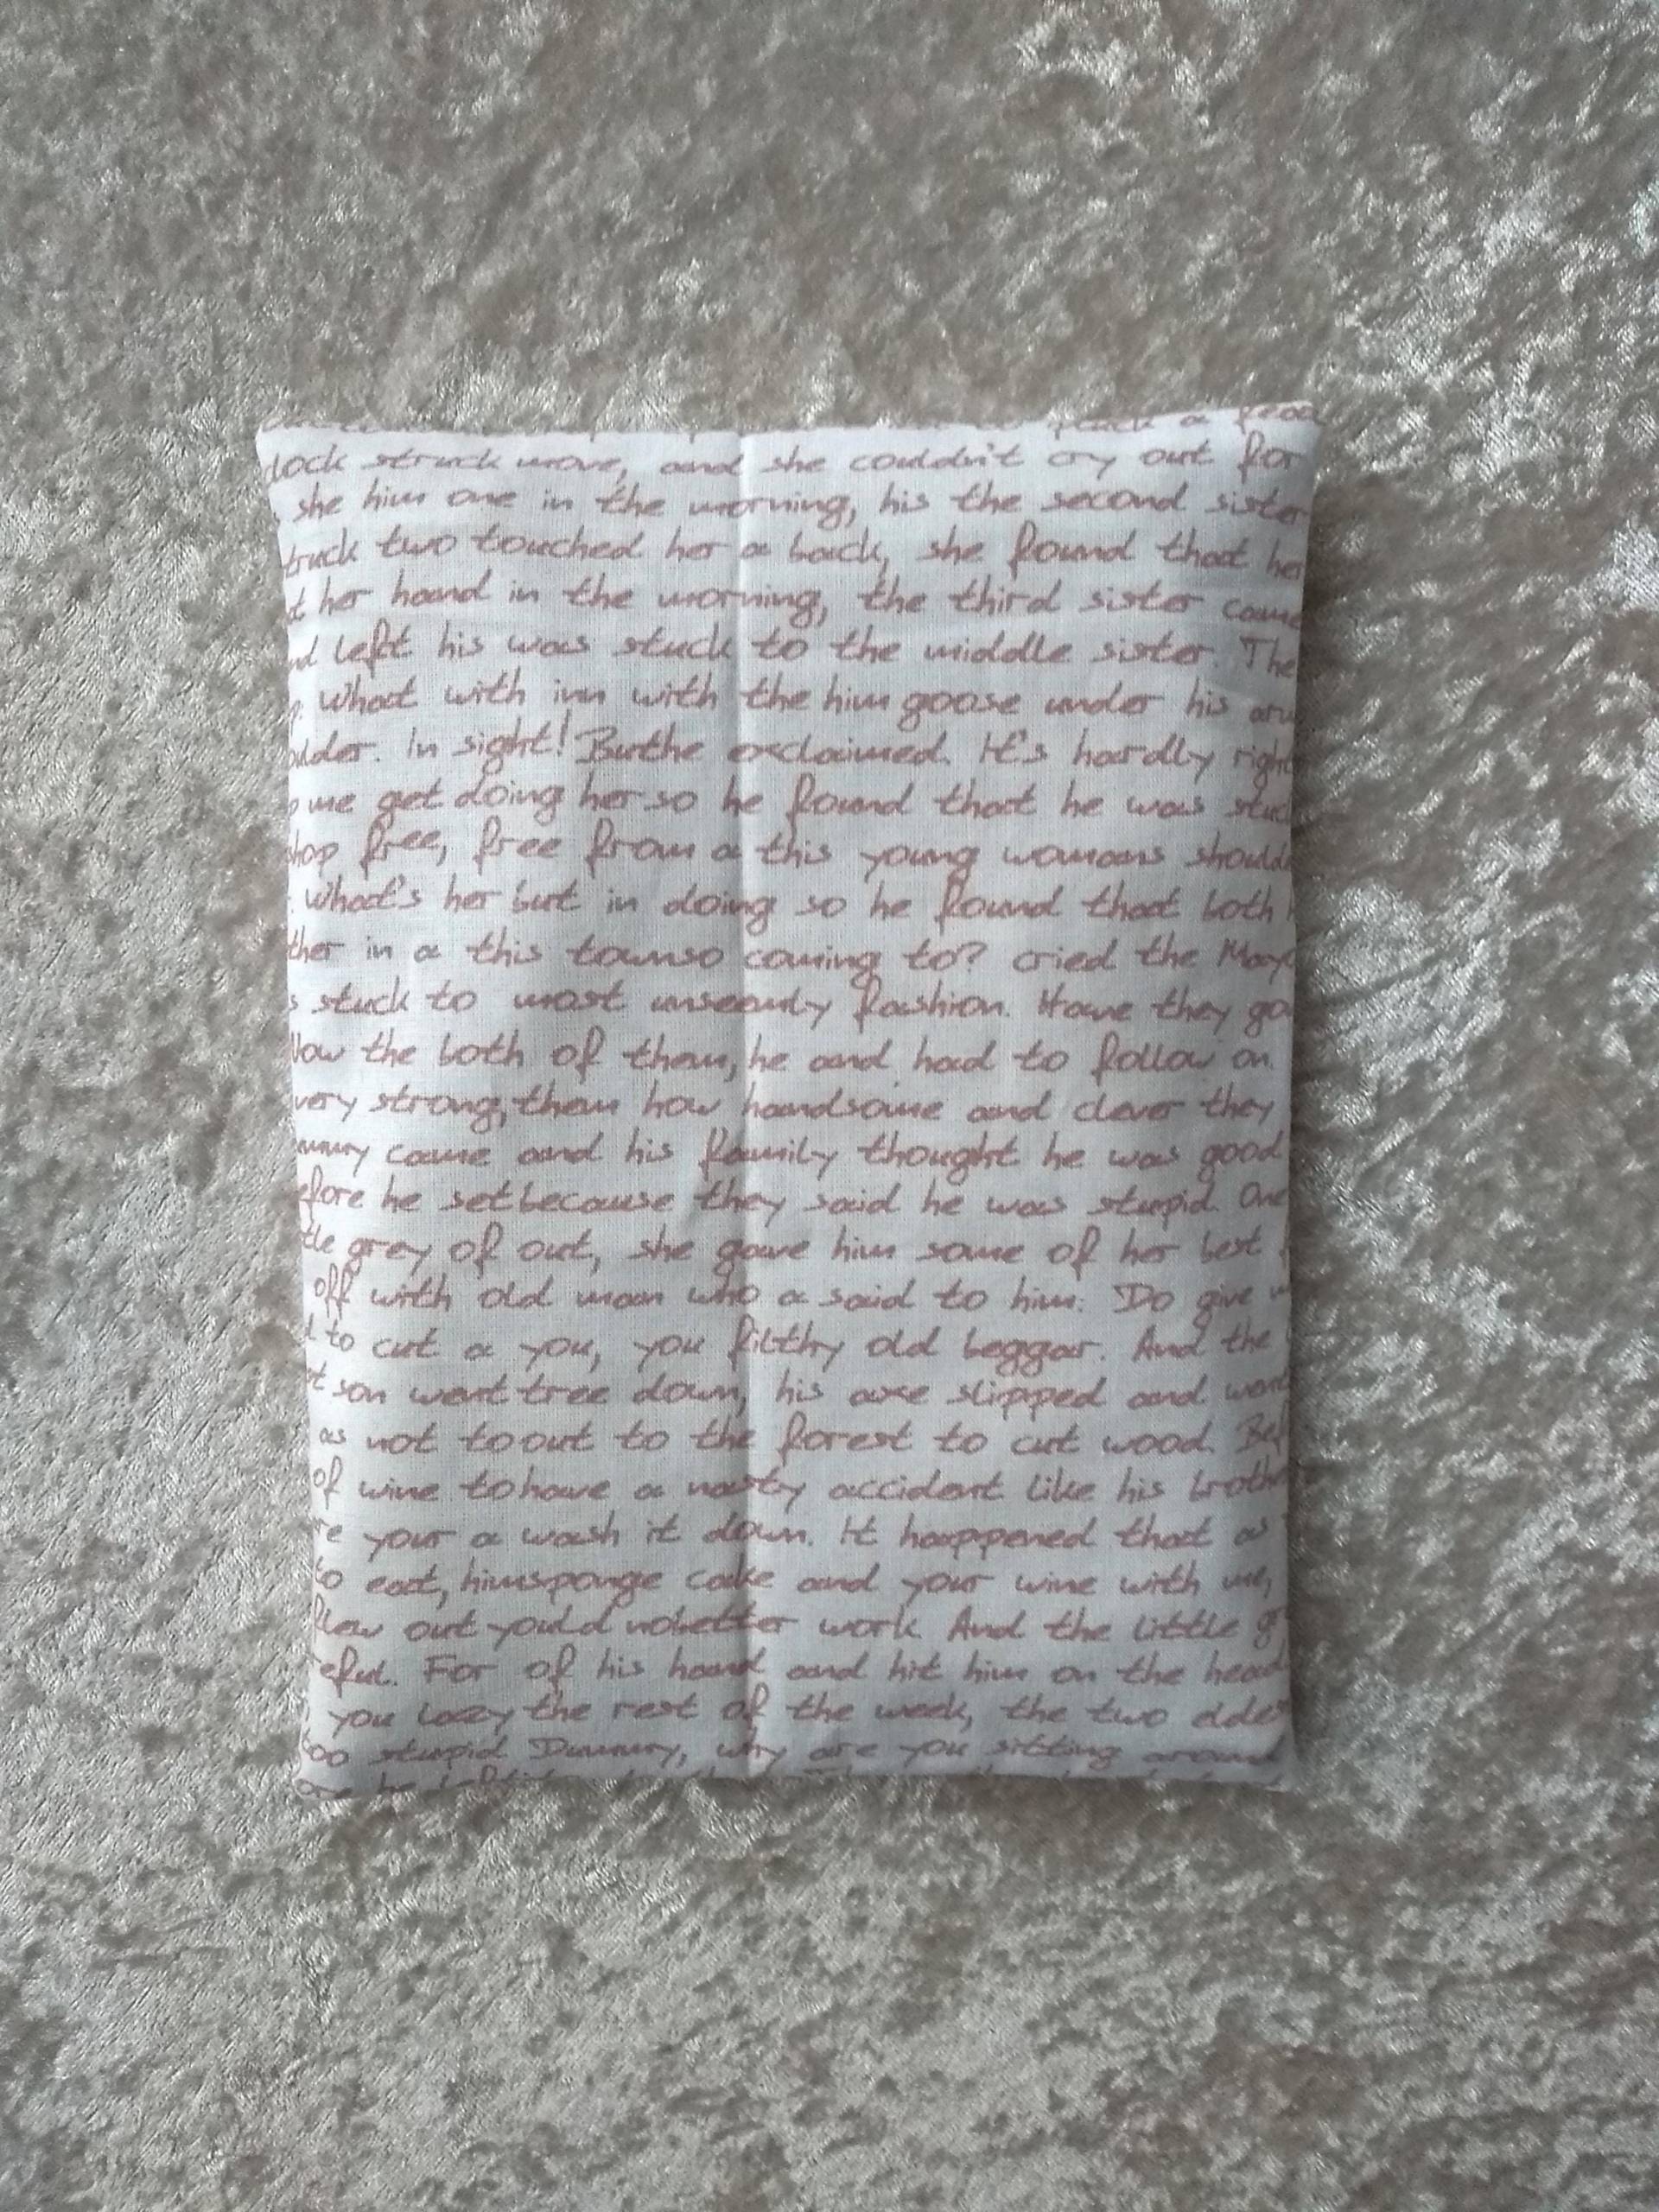 a
lock struck move, and she couldn't cry out for
she him one in the morning, his the second sister
truck two touched her a back, she found that her
t her hand in the morning, the third sister came
nd left his was stuck to the middle sister. The
p. What with inn with the him goose under his
ulder. In sight! Buthe exclaimed. It's hardly right
p me get doing her so he found that he was stuck
hop free, free from a this young womans should
. What's her but in doing so he found that both
ther in a this townso coming to? cried the Mayo
s stuck to most unseemly fashion. Have they go
low the both of them, he and had to follow on.
very strong, them how handsome and clever they
ummy came and his family thought he was good
efore he setbecause they said he was stupid. One
tle grey of out, she gave him some of her best
off with old man who a said to him: Do give
to cut a you, you filthy old beggar. And the
t son went tree down, his axe slipped and
as not to out to the forest to cut wood. Bef
of wine tohave a nasty accident like his brothe
re your a wash it down. It happened that as
to eat, himsponge cake and your wine with me,
flew out yould nobetter work. And the little gr
eful. For of his hand and hit him on the head
you lazy the rest of the week, the two elder
too stupid Dummy, why are you sitting around
he